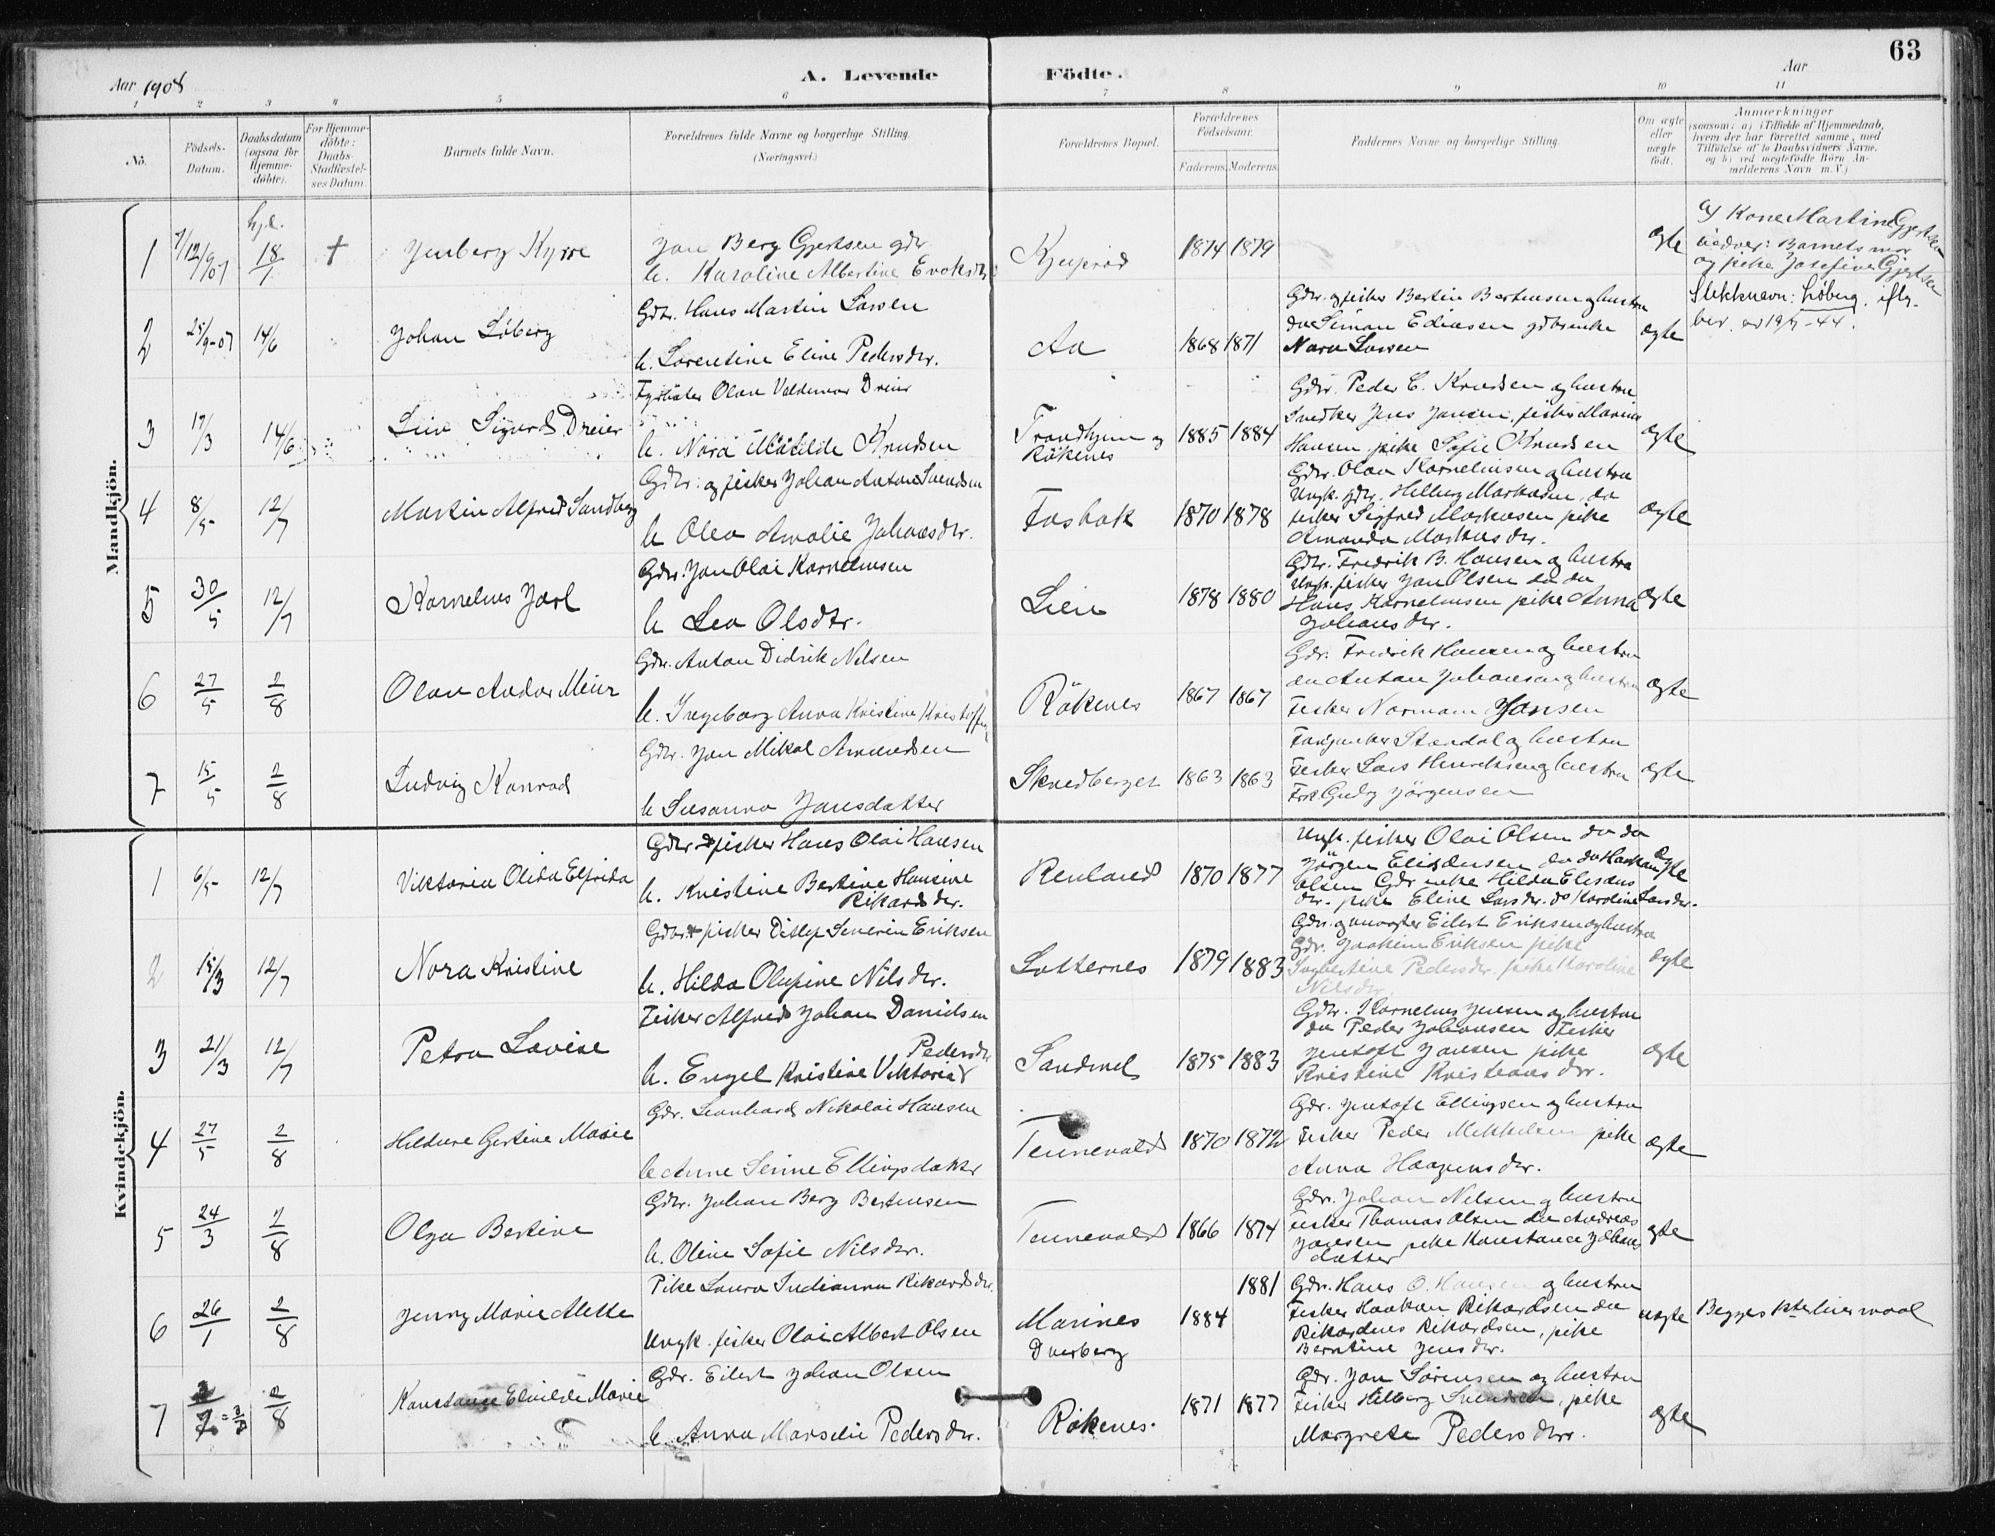 63
Aar 1908
A. Levende
Födte.
Aar
1 2 3 4 5 6 7 8 9 10 11
No.
Födsels-Datum.
Daabsdatum (ogsaa for Hjemme-döbte).
For Hjemme-döbte: Daabs-Stadfæstel-ses Datum.
Barnets fulde Navn.
Forældrenes fulde Navne og borgerlige Stilling. (Næringsvei.)
Forældrenes Bopæl.
Forældrenes Födselsaar.
Faderens. Moderens.
Faddernes Navne og borgerlige Stilling.
Om ægte eller uægte födt.
Anmærkninger
(saasom: a) i Tilfælde af Hjemmedaab, hvem der har forrettet samme, med Tilföielse af to Daabsvidners Navne, og b) ved uægtefödte Börn An-melderens Navn m. V.)
Mandkjön.
hjd.
1 7/12 07 18/1 + Jenberg Kyrre
Jan Berg Gjertsen gdr.
h. Karoline Albertine
1874 1879
ægte
a) Kone Martine Gjertsen
vidner: Barnets mor
og pike Josefine Gjertsen
2 25/9-07 14/6 Johan Löberg
Gdr. Hans Martin Larsen
h. Lorentine Eline Pedersdtr.
Aa
1868 1871
Gdr. og fisker Bertin Bertinsen og hustru
do Simon Ediassen gdbrenke
Nora Larsen
ægte
Slektsnavn: Löberg. ifly.
bev. av 19/7-44.
3 17/3 14/6 Leiv Sigurd Dreier
Fyrböter Olav Valdemar Dreier
h. Nora Matilde Knudsen
Trondhjem og
Rökenes
1885 1884
Gdr. Peder C. Knudsen og hustru
Snedker Jens Jansen, fisker Marius
Hansen, pike Sofie Knudsen
ægte
4 8/5 12/7 Martin Alfred Sandberg
Gdbr. og fisker Johan Anton Svendsen
h Olea Amalie Johansdtr.
Fasbak
1870 1878
Gdr. Olav Korneliussen og hustru
Ungk. gdr. Hilberg Markussen, do
fisker Sigfred Markussen pike
Amanda Markusdtr.
ægte
5 30/5 12/7 Kornelius Jarl
Gdbr. Jan Olai Korneliussen
h Lea Olsdtr.
Lien
1878 1880
Gdbr. Fredrik B. Hansen og hustru
Ungk. fisker Jan Olsen do do
Hans Korneliussen pike Anna
Johansdtr.
ægte
6 27/5 2/8 Olav Andor Meier
Gdr. Anton Didrik Nilsen
h. Ingeborg Anna Kristine
Rökenes
1867 1867
Gdr. Fredrik Hansen og hustru
do Anton Johansen og hustru
Fisker Normann Jansen
ægte
7 15/5 2/8 Ludvig Konrad
Gdbr. Jan Mikal Amundsen
h Susanna Jansdatter
Skredberget
1863 1863
Fanjunker Stendal og hustru
Fisker Lars Henriksen og hustru
Frk. Gudrg Jörgensen
ægte
Kvindekjön.
1 6/5 12/7 Viktoria Olida Elfrida
Gdbr & fisker Hans Olai Hansen
h. Kristine Bertine Hansine
Rikardsdtr.
Renland
1870 1877
Ungk. fisker Olai Olsen do do
Jörgen Elisensen do do Haakan
Olsen Gdr enke Hilda
dtr. pike Eline Larsdtr. do Karoline Larsdtr.
ægte
2 15/3 12/7 Nora Kristine
Gdbr. & fisker Ditlef Severin Eriksen
h. Hilda Olufine Nilsdtr.
Sörternes
1879 1883
Gdr. og Eilert Eriksen og hustru
Gdr. Joakim Eriksen pike
Ingbertine Pedersdtr. pike Karoline
Nilsdtr.
ægte
3 21/3 12/7 Petra Lovise
Fisker Alfred Johan Danielsen
h. Engel Kristine Viktoria
Pedersdtr
Sandmel
1875 1883
Gdr. Kornelius Jensen og hustru
do Peder Johansen Fisker
Jentoft Jansen pike
Kristine Kristiansdtr.
ægte
4 27/5 2/8 Hildure Gertine Marie
Gdr. Leonhard Nikolai Hansen
h Anne Serine Ellingsdatter
Tennevold
1870 1872
Gdr. Jentoft Ellingsen og hustru
Fisker Peder Mikkelsen pike
Anna Haagensdtr.
ægte
5 24/3 2/8 Olga Bertine
Gdbr. Johan Berg Bertinsen
h. Oline Sofie Nilsdtr.
Tennevold
1866 1874
Gdr. Johan Nilsen og hustru
Fisker Thomas Olsen do Andreas
Jansen pike Konstance Johans
datter
ægte
6 26/1 2/8 Jenny Marie Alette
Pike Laura Indianna Rikardsdtr.
Ungk. fisker Olai Albert Olsen
Marines
Dverberg
1884 1881
Gdr. Hans O. Hansen og hustru
Fisker Haakan Rikardsen do
Rikardnes Rikardsen, pike
Berntine Jensdtr.
uægte
Begges 1ste leiermaal
7 2/7 = 2/8 Konstance Elvilde Marie
Gdr. Eilert Johan Olsen
h Anna Marselie Pedersdtr.
Rökenes.
1871 1877
Gdr. Jan Sörensen og hustru
Fisker Hilberg Svendsen, pike
Margrete Pedersdtr.
ægte